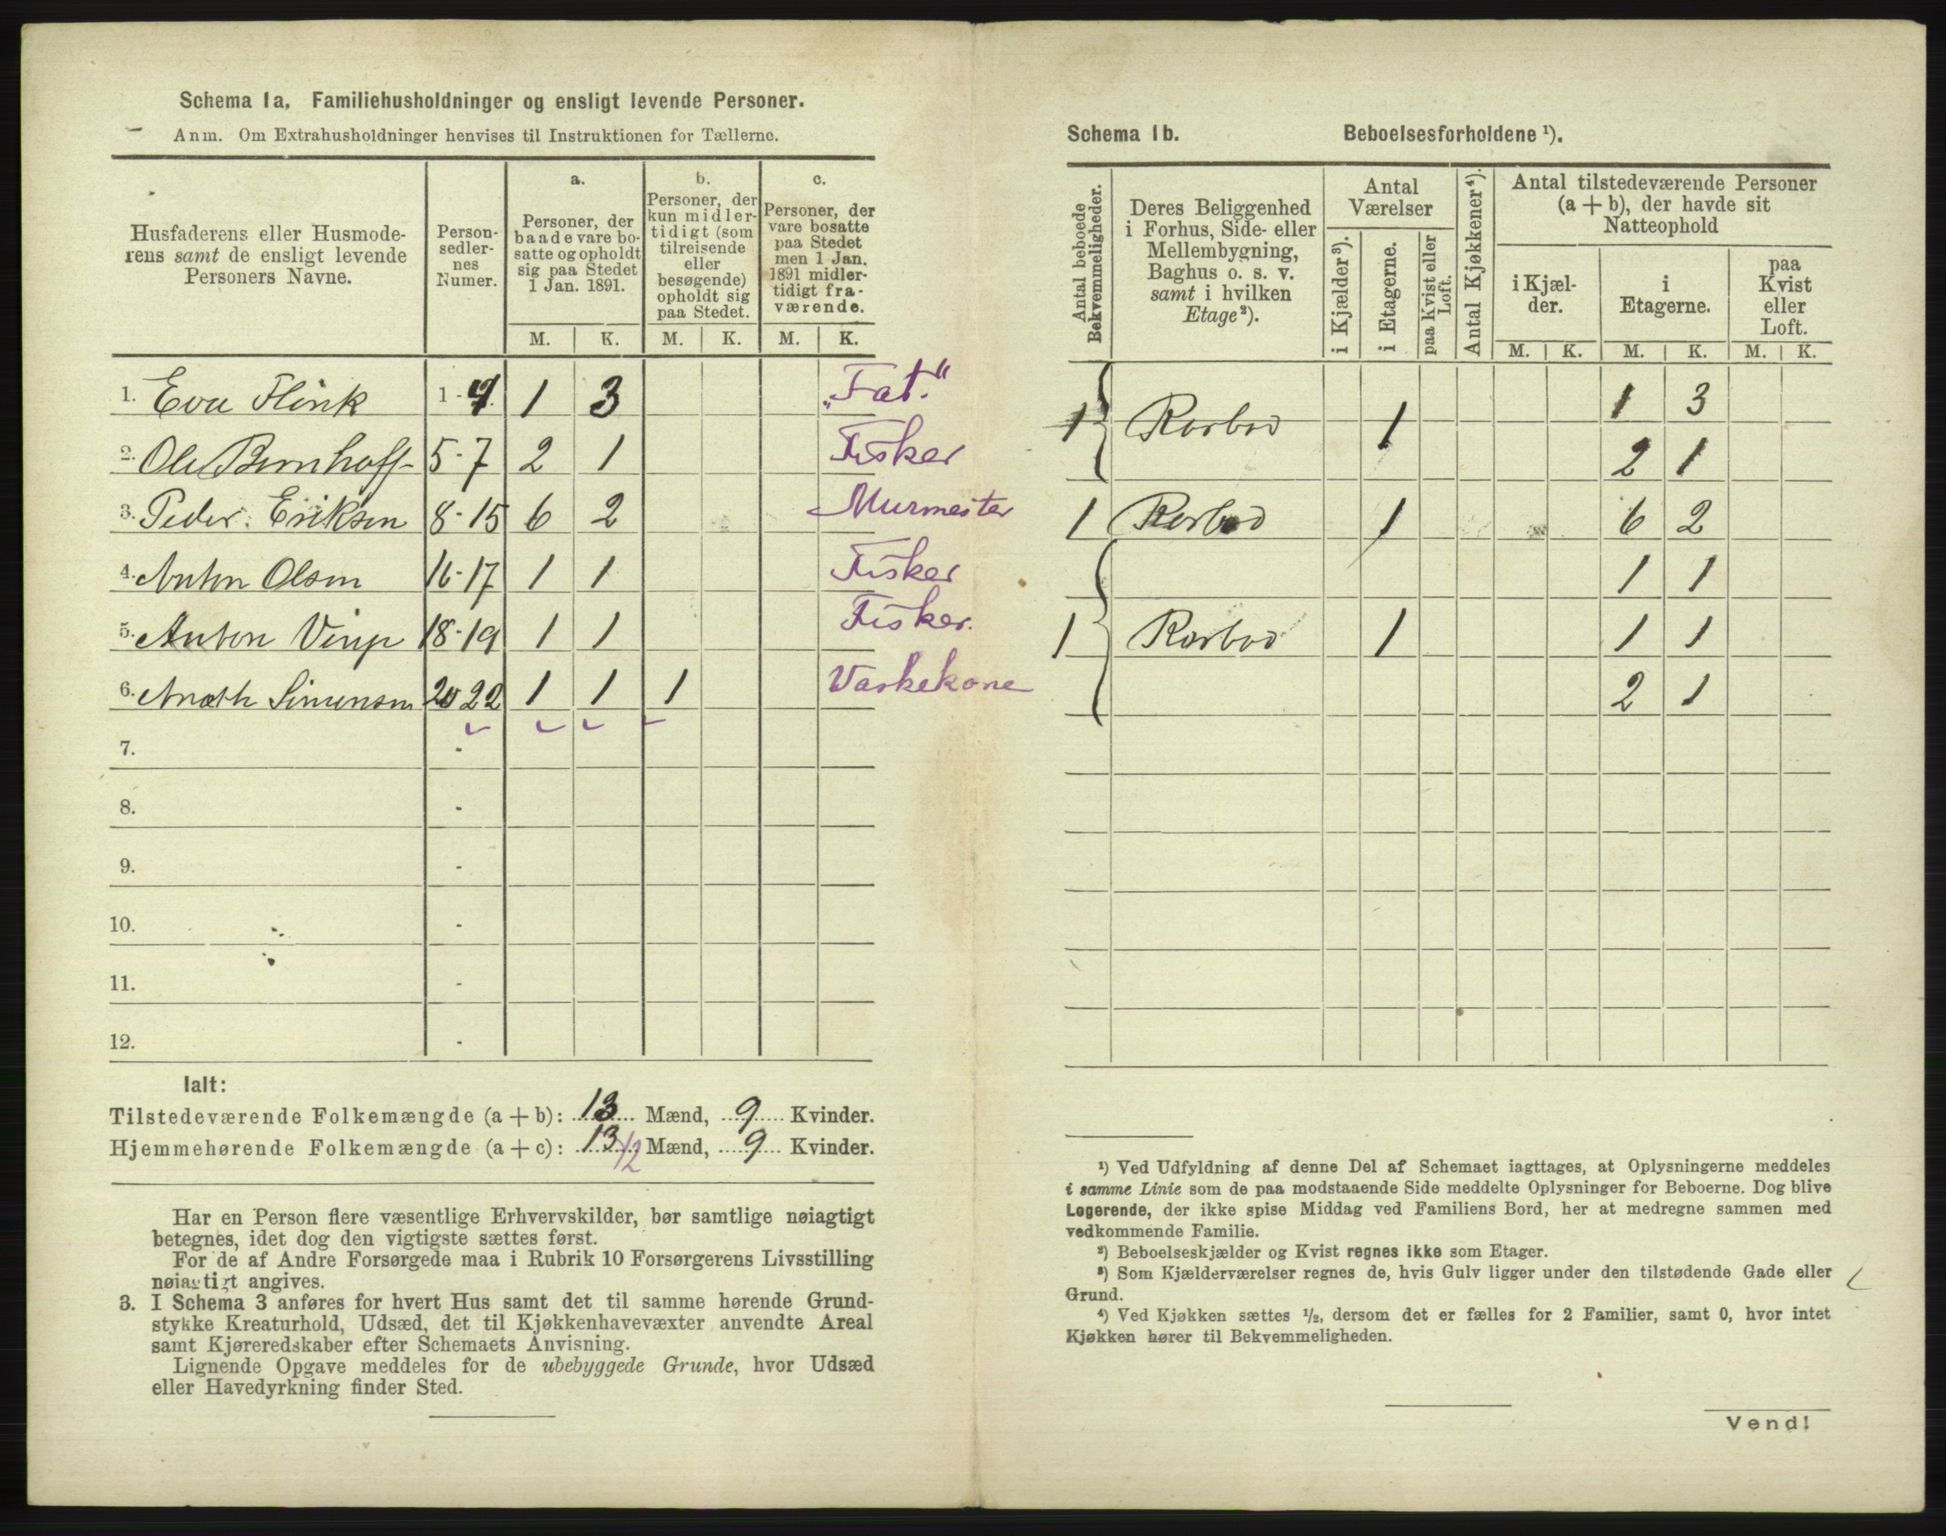 Schema 1a, Familiehusholdninger og ensligt levende Personer.
Anm. Om Extrahusholdninger henvises til Instruktionen for Tællerne.
Husfaderens eller Husmode-
rens samt de ensligt levende
Personers Navne.
Person-
sedler-
nes
Numer.
a.
Personer, der
baade vare bo-
satte og opholdt
sig paa Stedet
1 Jan. 1891.
b.
Personer, der
kun midler-
tidigt (som
tilreisende
eller
besøgende)
opholdt sig
paa Stedet.
c.
Personer, der
vare bosatte
paa Stedet
men 1 Jan.
1891 midler-
tidigt fra-
værende.
M. K. M. K. M. K.
1. Eva Flink 1-4 1 3 "Fat."
2. Ole Bernhoff 5-7 2 1 Fisker
3. Peder Eriksen 8-15 6 2 Murmester
4. Anton Olsen 16-17 1 1 Fisker
5. Anton 18-19 1 1 Fisker.
6. Simensen 20 22 1 1 1 Vaskekone
7. -
8. -
9. -
10. -
11. -
12. -
Ialt:
Tilstedeværende Folkemængde (a + b): 13 Mænd, 9 Kvinder.
Hjemmehørende Folkemængde (a + c): 13 12 Mænd, 9 Kvinder.
Har en Person flere væsentlige Erhvervskilder, bør samtlige nøiagtigt
betegnes, idet dog den vigtigste sættes først.
For de af Andre Forsørgede maa i Rubrik 10 Forsørgerens Livsstilling
nøiagtigt angives.
3. I Schema 3 anføres for hvert Hus samt det til samme hørende Grund-
stykke Kreaturhold, Udsæd, det til Kjøkkenhavevæxter anvendte Areal
samt Kjøreredskaber efter Schemaets Anvisning.
Lignende Opgave meddeles for de ubebyggede Grunde, hvor Udsæd
eller Havedyrkning finder Sted.
Schema 1b. Beboelsesforholdene ¹).
Antal beboede
Bekvemmeligheder.
Deres Beliggenhed
i Forhus, Side- eller
Mellembygning,
Baghus o. s. v.
samt i hvilken
Etage²).
Antal
Værelser
i Kjælder³).
i Etagerne.
paa Kvist eller
Loft.
Antal Kjøkkener⁴).
Antal tilstedeværende Personer
(a + b), der havde sit
Natteophold
i Kjæl-
der.
i
Etagerne.
paa
Kvist
eller
Loft.
M. K. M. K. M. K.
1 Rorbod 1 1 3
2 1
1 Rorbod 1 6 2
1 1
1 Rorbod 1 1 1
2 1
¹) Ved Udfyldning af denne Del af Schemaet iagttages, at Oplysningerne meddeles
i samme Linie som de paa modstaaende Side meddelte Oplysninger for Beboerne. Dog blive
Logerende, der ikke spise Middag ved Familiens Bord, her at medregne sammen med
vedkommende Familie.
²) Beboelseskjælder og Kvist regnes ikke som Etager.
³) Som Kjælderværelser regnes de, hvis Gulv ligger under den tilstødende Gade eller
Grund.
⁴) Ved Kjøkken sættes ½, dersom det er fælles for 2 Familier, samt 0, hvor intet
Kjøkken hører til Bekvemmeligheden.
Vend!